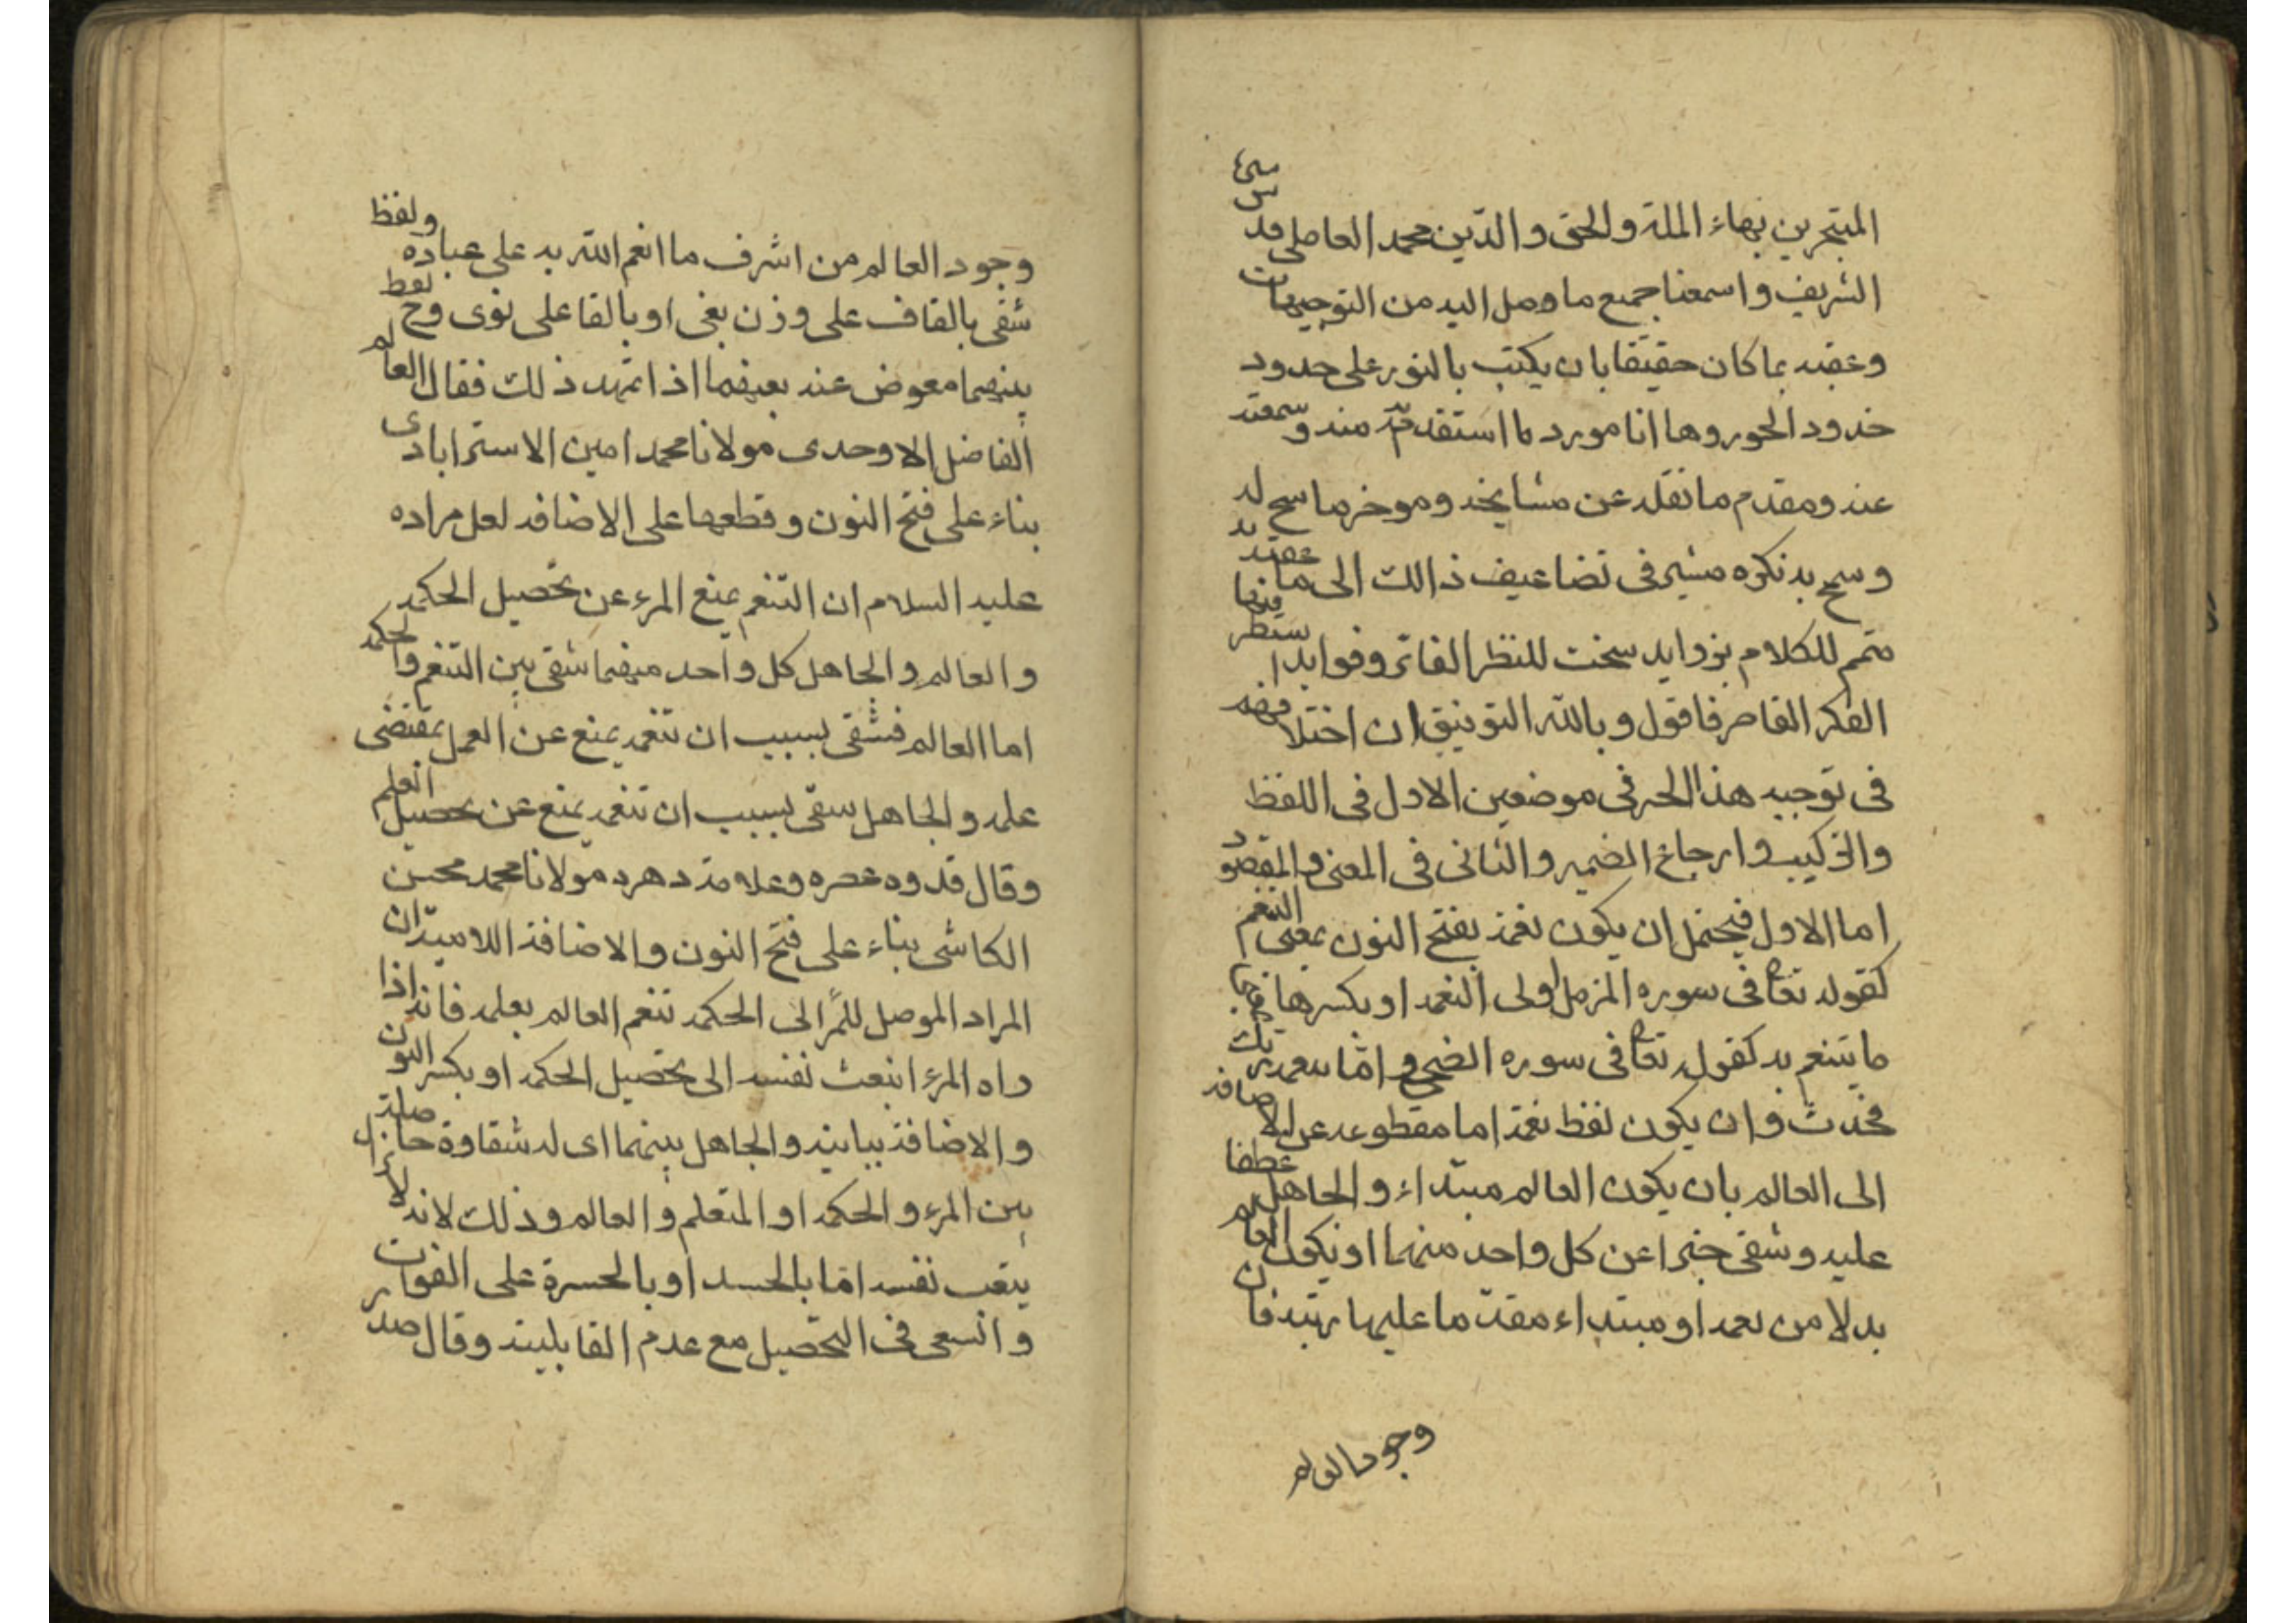 المتبحرين بهاء الملة والحق والدّين محمد العاملي قدس سره
الشريف واسمعنا جميع ما وصل اليه من التوجيهات
وعقبه بما كان حقيقا بان يكتب بالنور على حدود
خدود الحور وها انا مورد ما استفدته منه وسمعته
عنه ومقدم ما نقله عن مشايخه وموخر ما سنح له
وسمح به نكره مشير فى تضاعيف ذالك الى ما عقبته به
متمم للكلام بزوايد سخت للنظر الفاتر وفوايد استطر فيها
الفكر القاصر فاقول وبالله التوفيق ان اختلافهم
فى توجيه هذا الحر فى موضعين الاول فى اللفظ
والتركيب وارجاع الضمير والثانى فى المعنى والمقصود
اما الاول فيحتمل ان يكون نعمة بفتح النون بمعنى التنعم
كقوله تعا فى سوره المزمل اولى النعمه او بكسرها
ما يتنعم به كقوله تعا فى سوره الضحى وامّا بنعمة ربك
فحدّث وان يكون لفظ نعمة اما مقطوعه عن الاضافه
الى العالم بان يكون العالم مبتداء والجاهل عطفا
عليه وشقى خبرا عن كل واحد منهما او يكون العالم
بدلا من نعمه او مبتداء مقدّما عليها رتبة فان
وجود العالم
وجود العالم من اشرف ما انعم الله به على عباده ولفظ
شقى بالقاف على وزن بغى او بالفا على نوى وح لفظ
بينهما معوض عند بعضهما اذا تمهد ذلك فقال العالم
الفاضل الاوحدى مولانا محمد امين الاسترابادى
بناء على فتح النون وقطعها على الاضافه لعل مراده
عليه السلام ان التنعم يمنع المرء عن تحصيل الحكمه
والعالم والجاهل كل واحد منهما شقى بين التنعم والحكمه
اما العالم فشقى بسبب ان تنعمه يمنع عن العمل بمقتضى
علمه والجاهل سقى بسبب ان تنعمه يمنع عن تحصيل العلم
وقال قدوه عصره وعلامة دهره مولانا محمد محسن
الكاشى بناء على فتح النون والاضافة اللامية ان
المراد الموصل للمرء الى الحكمه تنعم العالم بعلمه فانه اذا
راه المرء انبعث نفسه الى تحصيل الحكمه او بكسر النون
والاضافة بيانيه والجاهل بينهما اى له شقاوة حاصلة
بين المرء والحكمه او المتعلم والعالم وذلك لانه لا يزال
يتعب نفسه امّا بالحسد او بالحسرة على الفوات
والسعى فى التحصيل مع عدم القابليته وقال صدر